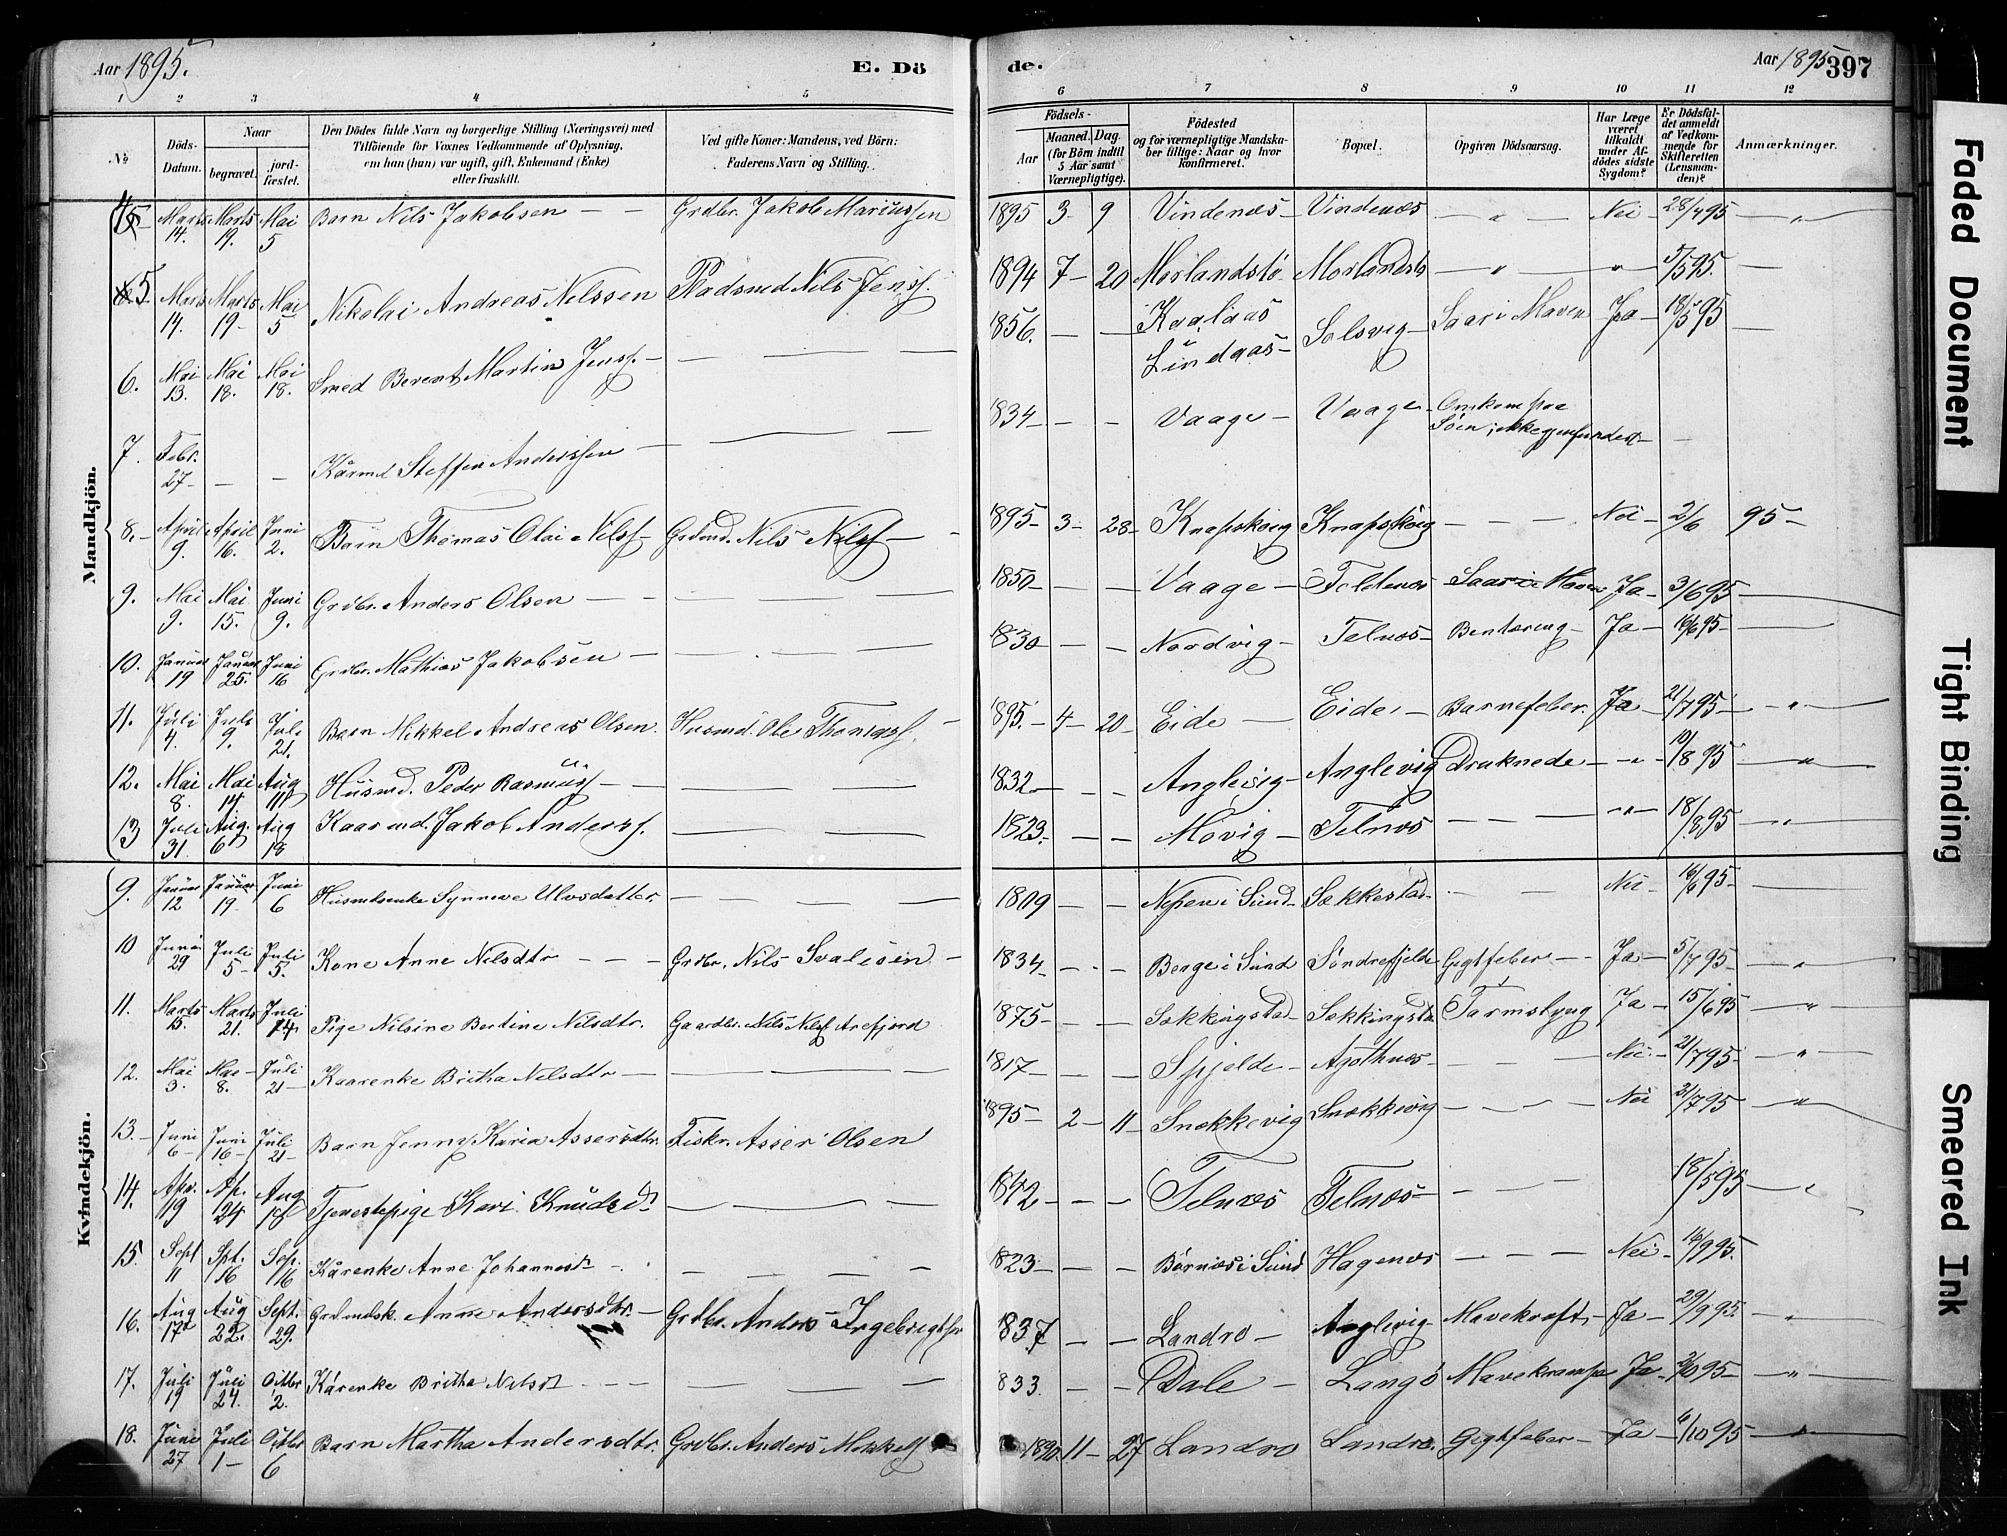 Aar 1895.
E. Dö
de.
Aar 1895
397
1 2 3 4 5 6 7 8 9 10 11 12
No
Döds-Datum.
Naar
begravet.
jordfæstet.
Den Dödes fulde Navn og borgerlige Stilling (Næringsvei) med
Tilföiende for Voxnes Vedkommende af Oplysning,
om han (hun) var ugift, gift, Enkemand (Enke)
eller fraskilt.
Ved gifte Koner: Mandens, ved Börn:
Faderens Navn og Stilling.
Födsels-
Aar
Maaned. Dag.
(for Börn indtil
5 Aar samt
Værnepligtige).
Födested
og for værnepligtige Mandskaber tillige: Naar og hvor
konfirmeret.
Bopæl.
Opgiven Dödsaarsag.
Har Læge
været
tilkaldt
under Afdödes sidste
Sygdom?
Er Dödsfaldet anmeldt
af Vedkommende for
Skifteretten
(Lensmanden)?
Anmærkninger.
Mandkjön.
Marts 14. Marts 19. Mai 5 Barn Nils Jakobsen — — Grdbr. Jakob Mariussen 1895 3 9 Vindenæs Vindenæs — " — Nei 28/4 95 — " —
5 Marts 14. Marts 19 Mai 5 Nikolai Andreas Nilssen Pladsmd Nils Jens. 1894 7 20 Morlandstø Morlandstø — " — " 5/5 95. —
6. Mai 13. Mai 18. Mai 18. Smed Berent Martin Jens. — — — 1856. — — Lindaas Solsvig Saar i Maven Ja 18/5 95 —
7. Febr. 27 — — Kårmd Steffen Anderssen — — — 1834 — — Vaage Vaage Omkom paa
Søen; ikke gjenfunden — —
8. April 9. April 16. Juni 2. Barn Thomas Olai Nils. Grdmd. Nils Nils. 1895 3 28 Knapskog Knapskog — — Nei 2/6 95
9. Mai 9. Mai 15. Juni 9. Grdbr. Anders Olsen — — — 1850 — — Vaage Toldnes Saar i Maven Ja 3/6 95 —
10. Januar 19 Januar 25. Juni 16 Grdbr. Mathias Jakobsen — — — 1830 — — Nordvig Telnæs Bentæring Ja 16/6 95 —
11. Juli 4. Juli 9. Juli 21. Barn Mikkel Andreas Olsen. Husmd. Ole 1895. 4 20 Eide Eide Barnefeber. Ja 21/7 95 — " —
12. Mai 8. Mai 14. Aug 11 Husmd. Peder Rasmus. — — — 1832 — — Anglevig Anglevig Druknede — " 19/8 95 — " —
13 Juli 31. Aug. 6 Aug 18 Kaarmd. Jakob Anders. — — — 1823. — — Møvig Telnæs — — " 18/8 95 — " —
Kvindekjön.
9. Januar 12 Januar 19. Juni 6 Husmdsenke Synneve Ulvsdatter. — — — 1809 — — i Sund Sækkestad — — Nei 16/6 95 —
10 Juni 29 Juli 5 Juli 5. Kone Anne Nilsdtr — — Grdbr. Nils 1834 — — Berge i Sund Søndrefjelde Gigtfeber — Ja 5/7 95 — " —
11. Marts 15. Marts 21. Juli 14 Pige Nilsine Bertine Nilsdtr. Gaardbr. Nils Nils. Arefjord 1875 — — Sekkingstad Sekkingstad Tarmslyng Ja 15/6 95 — " —
12. Mai 3. Mai 8. Juli 21 Kaarenke Britha Nilsdtr — — — 1817 — — Spjelde Agothnes — — Nei 21/7 95 — " —
13. Juni 6 Juni 16 Juli 21 Barn Jenny Karia Assersdtr. Fiskr. Asser Olsen 1895 2 11 Snekkevig Snekkevig — — Nei 21/7 95 — " —
14. Apr. 19 Ap. 24 Aug 18 Tjenestepige Kari Knudsd. — — — 1842 — — Telnæs Telnæs — — 18/5 95 — " —
15. Sept 11 Spt. 16 Sep. 16 Kårenke Anne Johannesd. — — — 1823 — — Børnæs i Sund Hagenæs — — Nei 16/9 95.
16. Aug 17 Aug 22. Sept. 29. Grdmdsk. Anne Andersdtr. Grdbr. Anders Ingebrigts. 1837 — — Landro Anglevig Mavekræft Ja 29/9 95. "
17. Juli 19 Juli 24. Octbr 2. Kårenke Britha Nilsd. — — — 1833. — — Dale Langø Mavekrampe Ja 2/10 95 — " —
18. Juni 27 Juli 1 Octbr 6 Barn Martha Andersdtr. Grdbr. Anders Mikkels. 1890 11 27 Landro Landro. Gigtfeber Ja 6/10 95 — " —
Faded Document
Tight Binding
Smeared Ink